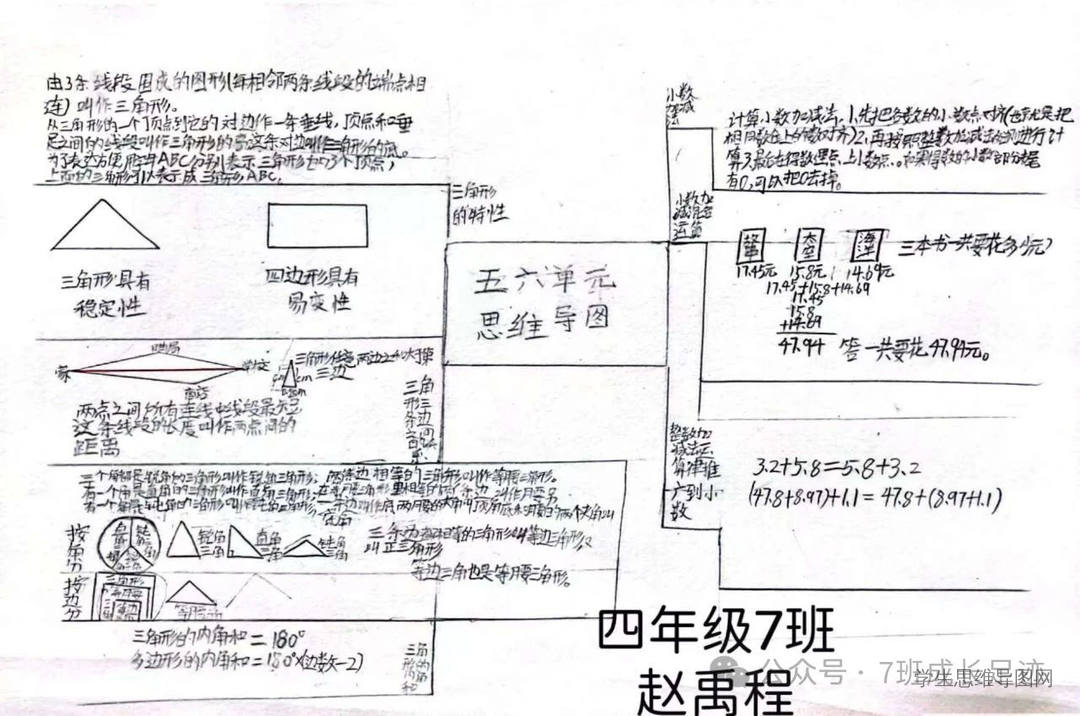 由3条线段围成的图形(每相邻两条线段的端点相
连)叫作三角形。
从三角形的一个顶点到它的对边作一条垂线,顶点和垂
足之间的线段叫作三角形的高,这条对边叫作三角形的底。
为了表达方便,用字母ABC分别表示三角形的3个顶点,
上面的三角形可以表示成三角形ABC。
三角形
的特性
三角形具有
稳定性
四边形具有
易变性
邮局
家
学校
商店
三角形任意两边之和大于第
三边
两点之间所有连线中线段最短
这条线段的长度叫作两点间的
距离
三角
形三
条边
的关
系
三个角都是锐角的三角形叫作锐角三角形;
有一个角是直角的三角形叫作直角三角形;
有一个角是钝角的三角形叫作钝角三角形。
两条边相等的三角形叫作等腰三角形。
按角分
锐角
三角
直角
三角
钝角
三角
三条边都相等的三角形叫等边三角形,又
叫正三角形
等边三角也是等腰三角形。
按边分
三角形
等腰
三角形的内角和=180°
多边形的内角和=180°×(边数-2)
三角
形的
内角
和
五六单元
思维导图
小数
加减
法
计算小数加减法,1.先把各数的小数点对齐(也就是把
相同数位上的数对齐)2,再按照整数加减法的法则进行计
算3.最后在得数里点上小数点。如果得数的小数部分末尾
有0,可以把0去掉。
小数加
减混合
运算
17.45元 15.8元 14.69元
三本书一共要花多少元?
17.45+15.8+14.69
17.45
15.8
+14.69
47.94
答一共要花47.94元。
整数加
减法运
算律推
广到小
数
3.2+5.8=5.8+3.2
(47.8+8.97)+1.1=47.8+(8.97+1.1)
四年级7班
赵禹程
公众号·7班成长足迹
学生思维导图网